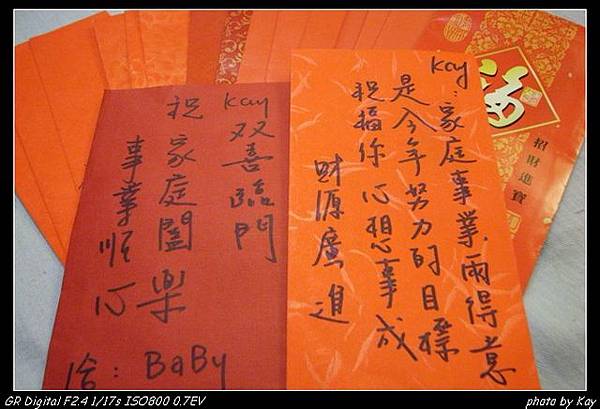 Kay
双喜臨門
祝家庭闔樂
事業順心
給：BaBy
Kay：家庭事業兩得意
是今年努力的目標
祝福你心想事成
財源廣進
福
招財進寶
GR Digital F2.4 1/17s ISO800 0.7EV
photo by Kay